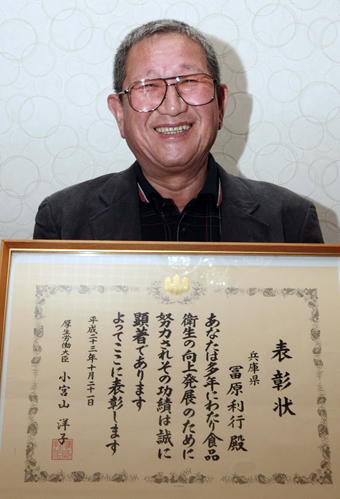 表彰状
兵庫県
冨原利行殿
あなたは多年にわたり食品
衛生の向上発展のために
努力されその功績は誠に
顕著であります
よってここに表彰します
平成二十三年十月二十一日
厚生労働大臣 小宮山洋子